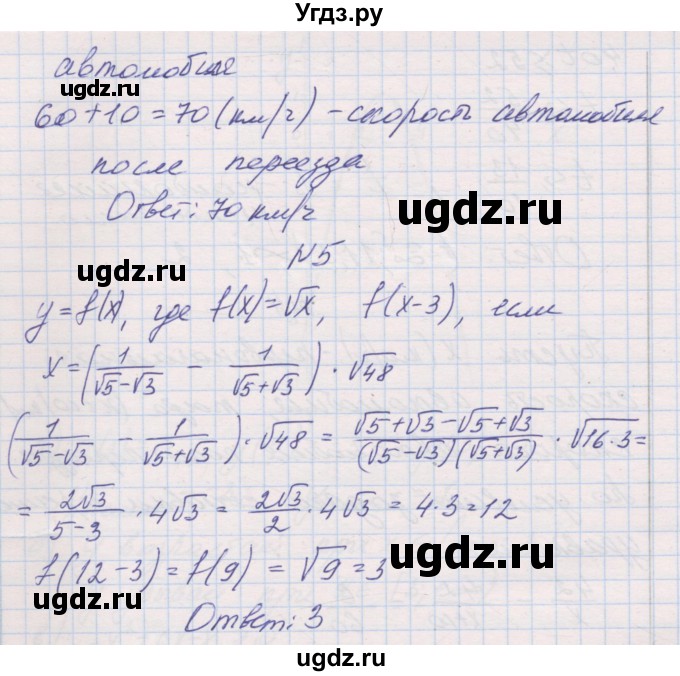 Угдз.ру
автомобиля
60+10=70(км/ч) - скорость автомобиля
после переезда
ugdz.ru
Ответ: 70 км/ч
N5
ugdz.ru
ugdz.ru
y=f(x), где f(x)=√x, f(x-3), если
x=(1/(√5-√3) - 1/(√5+√3))·√48
(1/(√5-√3) - 1/(√5+√3))·√48 = (√5+√3-√5+√3)/((√5-√3)(√5+√3))·√(16·3)=
= 2√3/(5-3)·4√3 = 2√3/2·4√3 = 4·3=12
ugdz.ru
f(12-3)=f(9) = √9=3
ugdz.ru
Ответ: 3
ugdz.ru